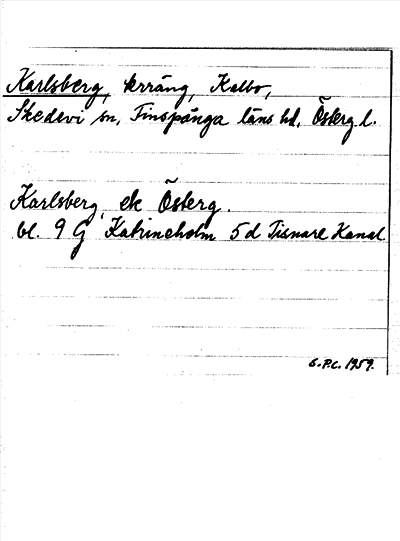 Karlsberg, krräng, Kalbo,
Skedevi sn, Finspånga läns hd, Österg. l.
Karlsberg, ek Österg.
bl. 9 G Katrineholm 5 d Tisnare Kanal
G.P.C. 1959.